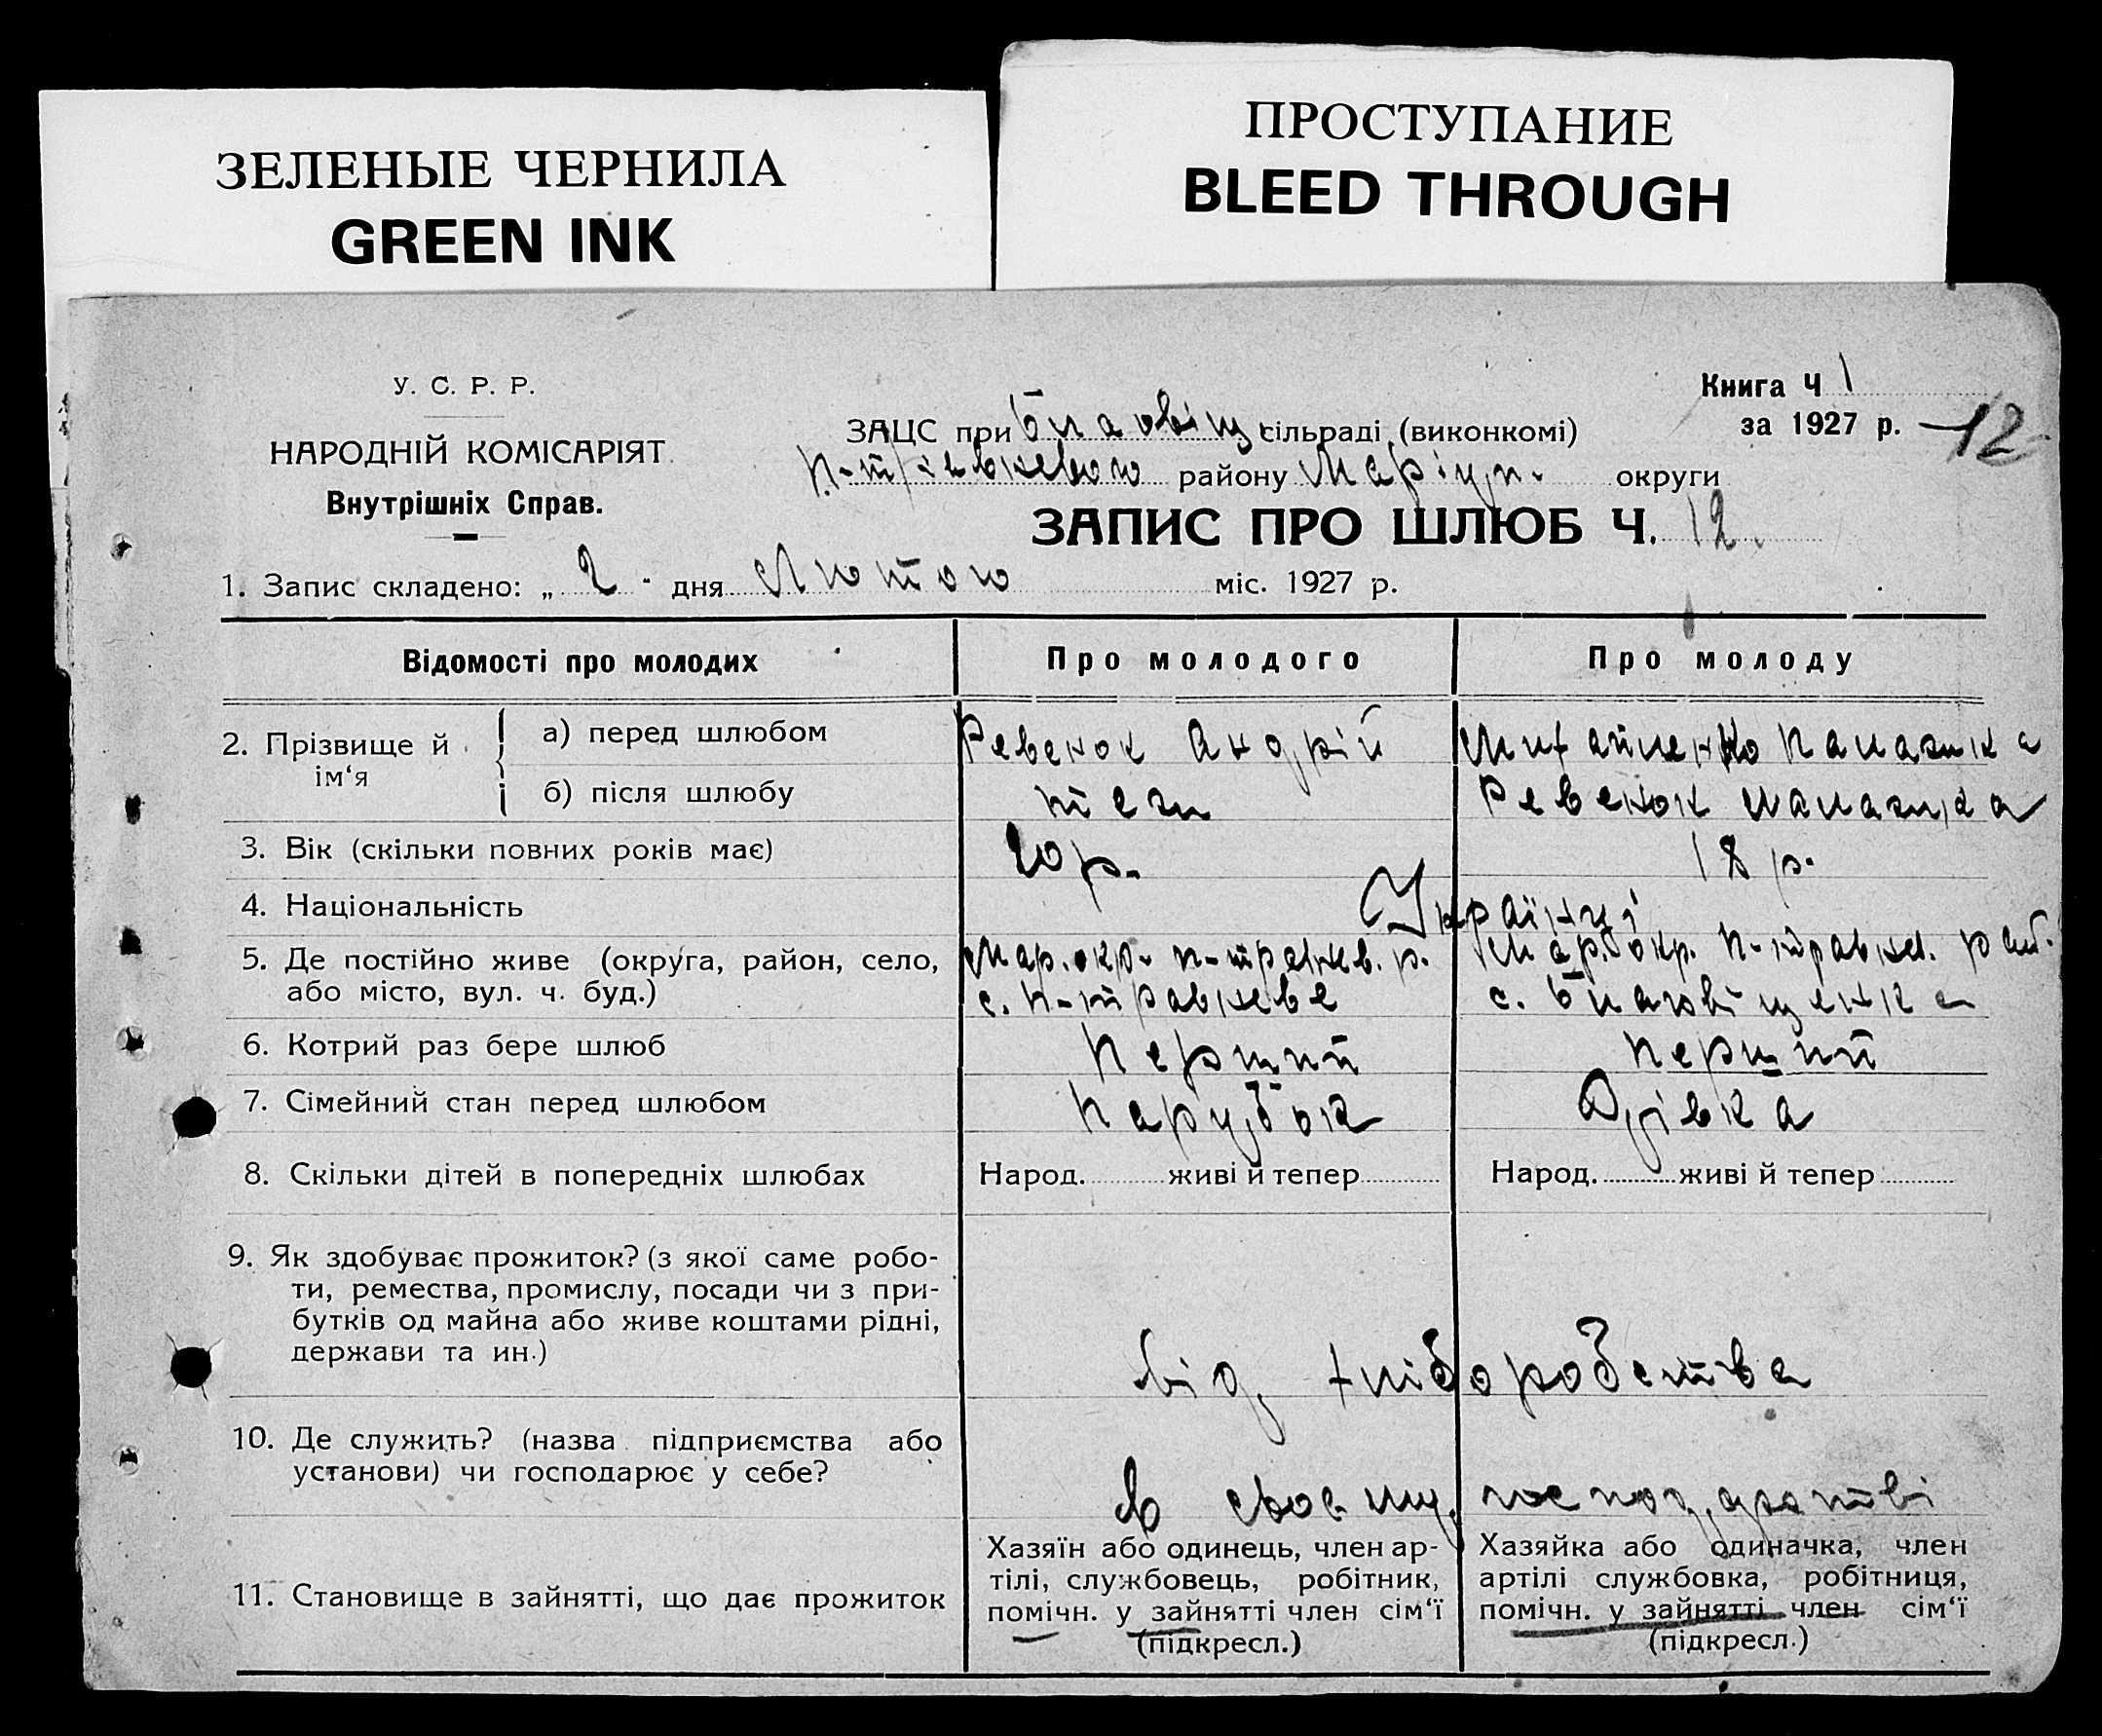 ЗЕЛЕНЫЕ ЧЕРНИЛА
GREEN INK
ПРОСТУПАНИЕ
BLEED THROUGH
У. С. Р. Р.
НАРОДНІЙ КОМІСАРІЯТ
Внутрішніх Справ.
Книга Ч 1
за 1927 р. 12
ЗАЦС при сільраді (виконкомі)
району Маріуп. округи
ЗАПИС ПРО ШЛЮБ Ч. 12.
1. Запис складено: „ 2 " дня Лютого міс. 1927 р.
Відомості про молодих Про молодого Про молоду
2. Прізвище й ім‘я
а) перед шлюбом Ревенок Андрій Михайленко Палажка
б) після шлюбу теж Ревенок Палажка
3. Вік (скільки повних років має) 20 р. 18 р.
4. Національність Українці
5. Де постійно живе (округа, район, село, або місто, вул. ч. буд.)
Мар. окр. п-травнев. р.
с. п-травневе
Мар. окр. п-травнев. рай.
с. Благовіщенка
6. Котрий раз бере шлюб Перший Перший
7. Сімейний стан перед шлюбом Парубок Дівка
8. Скільки дітей в попередніх шлюбах Народ. живі й тепер Народ. живі й тепер
9. Як здобуває прожиток? (з якої саме робо-
ти, ремества, промислу, посади чи з при-
бутків од майна або живе коштами рідні,
держави та ин.)
Від хліборобства
10. Де служить? (назва підприємства або
установи) чи господарює у себе?
В своєму
11. Становище в зайнятті, що дає прожиток
Хазяїн або одинець, член ар-
тілі, службовець, робітник,
помічн. у зайнятті член сім‘ї
(підкресл.)
Хазяйка або одиначка, член
артілі службовка, робітниця,
помічн. у зайнятті член сім‘ї
(підкресл.)